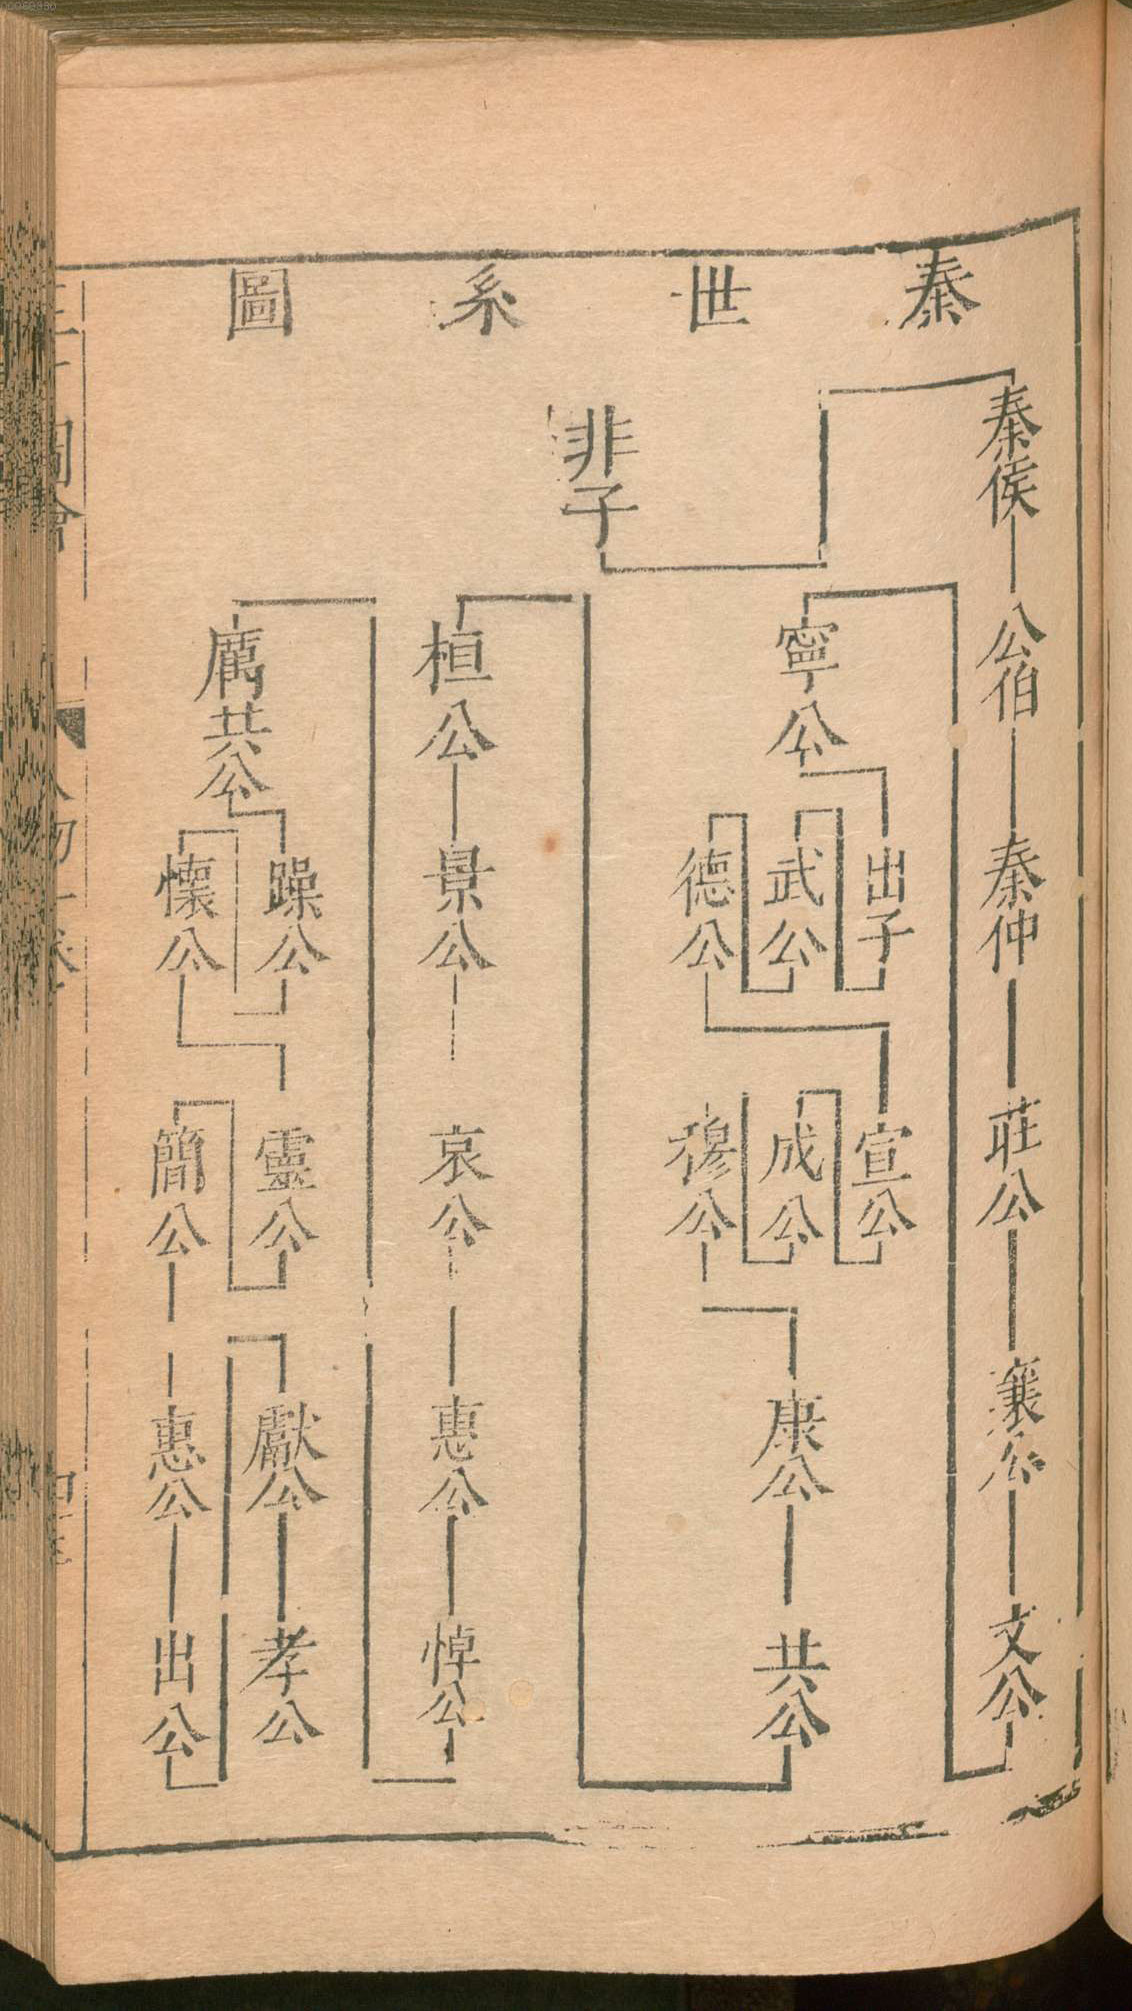 秦世系圖
非子
秦侯
公伯
秦仲
莊公
襄公
文公
寧公
出子
武公
德公
宣公
成公
穆公
康公
共公
桓公
景公
哀公
惠公
悼公
厲共公
躁公
懷公
靈公
簡公
惠公
出公
獻公
孝公
00059330